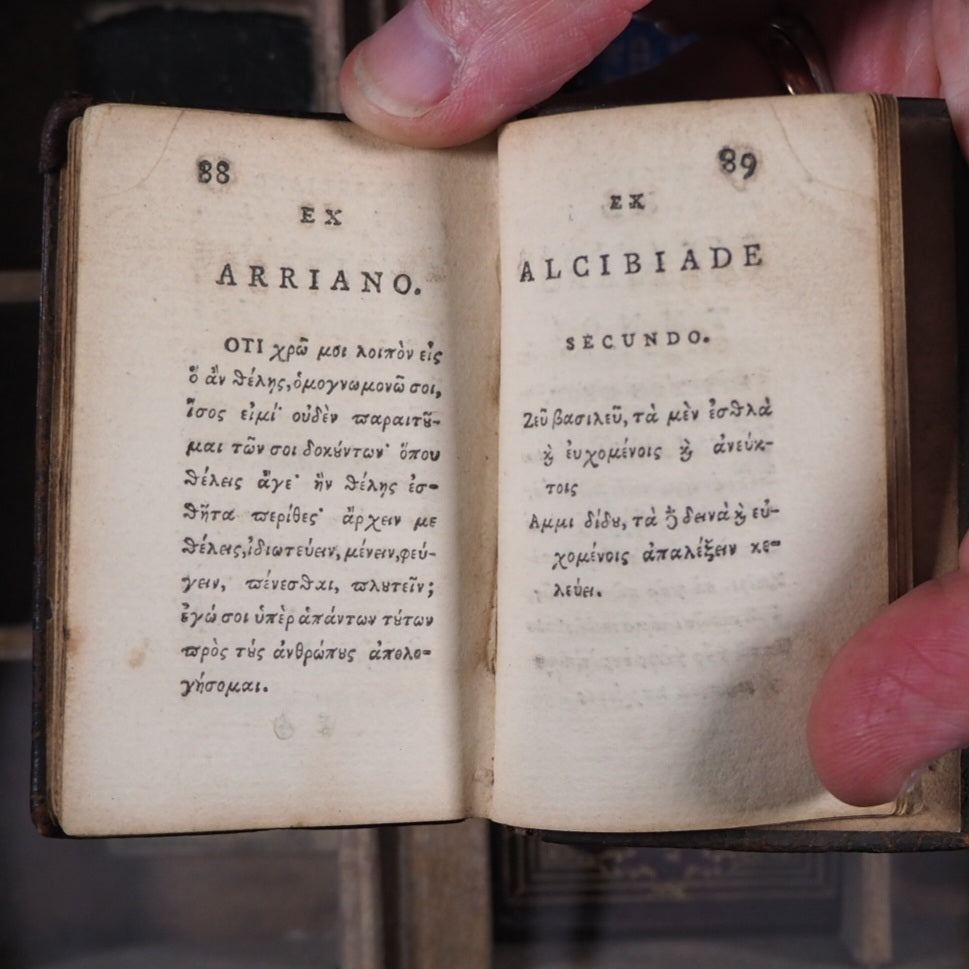 88
EX
ARRIANO.
ΟΤΙ χρῶ μοι λοιπὸν εἰς
ὃ ἂν θέλης, ὁμογνωμονῶ σοι,
ἴσος εἰμί· οὐδὲν ϖαραιτȣ͂-
μαι τῶν σοι δοκȣ́ντων· ὅπου
θέλεις ἄγε· ἣν θέλης ἐσ-
θῆτα ϖερίθες· ἄρχειν με
θέλεις, ἰδιωτεύειν, μένειν, φεύ-
γειν, ϖένεσθαι, ϖλȣτεῖν;
ἐγώ σοι ὑπὲρ ἁπάντων τȣ́των
ϖρὸς τȣ̀ς ἀνθρώπȣς ἀπολο-
γήσομαι.
89
EX
ALCIBIADE
SECUNDO.
Ζεῦ βασιλεῦ, τὰ μὲν ἐσθλὰ
ϗ̀ ἐυχομένοις ϗ̀ ἀνεύκ-
τοις
Αμμι δίδȣ, τὰ δὲ δεινὰ ϗ̀ εὐ-
χομένοις ἀπαλέξειν κε-
λεύει.